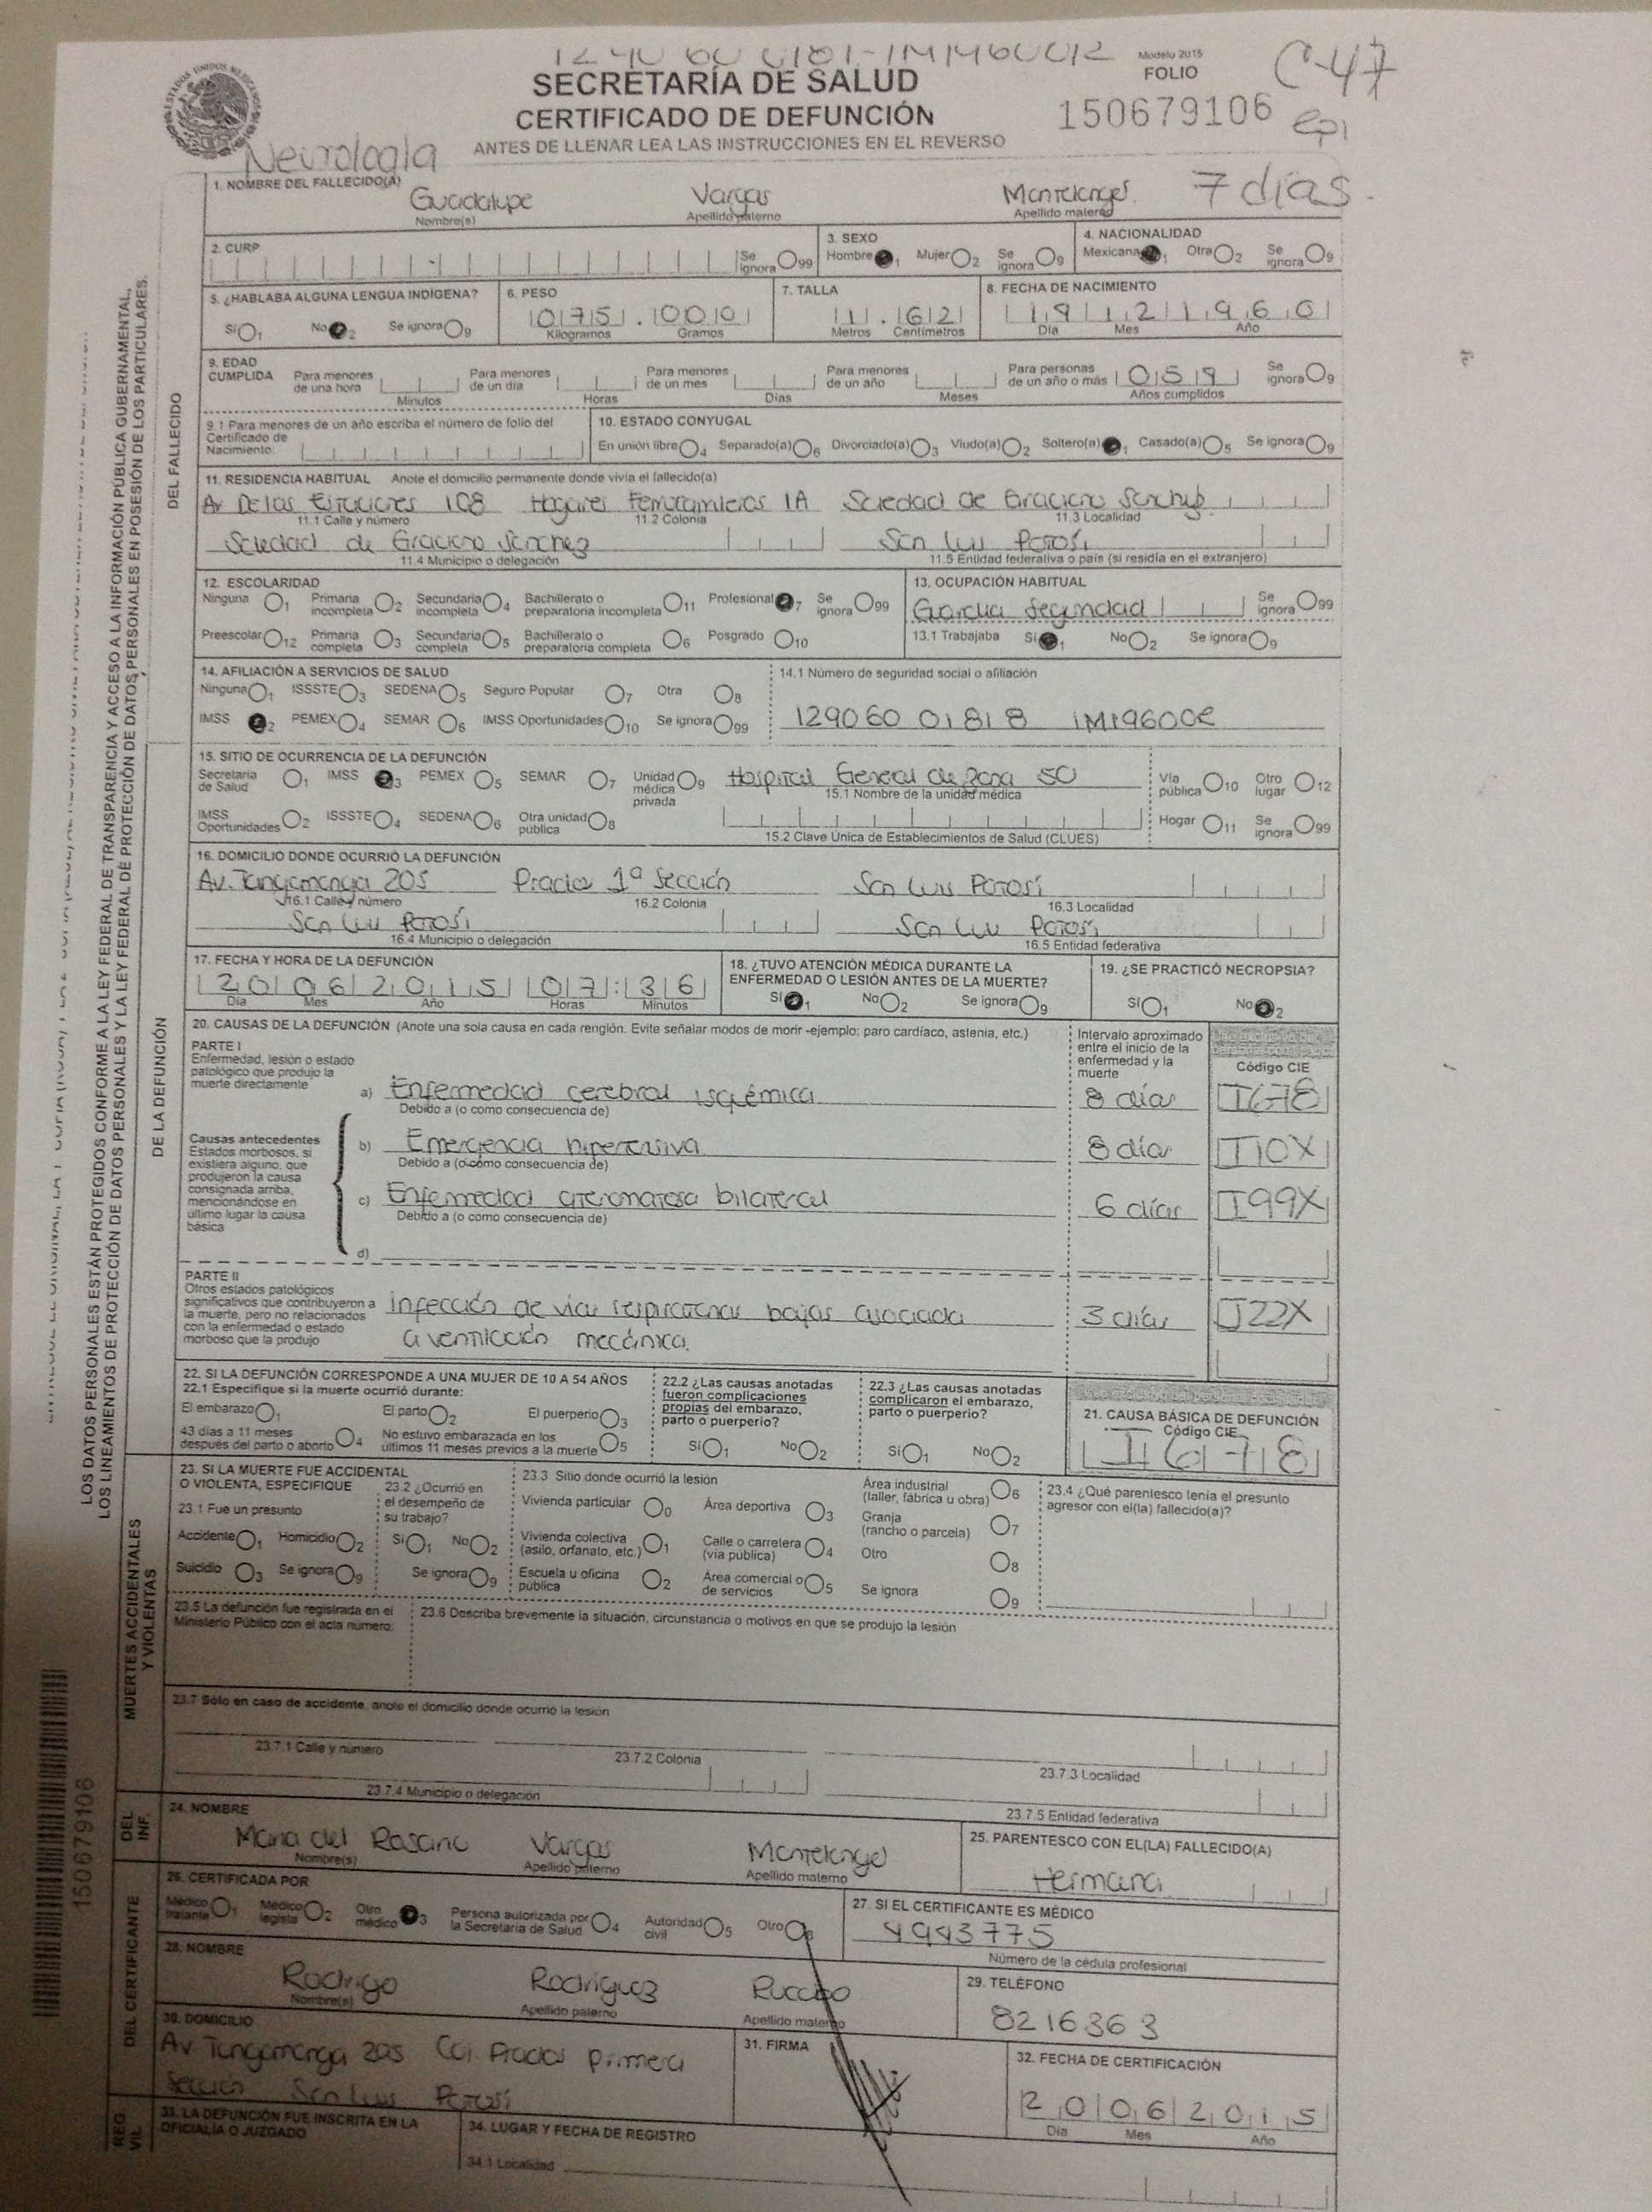 Modelo 2015
FOLIO
C-47
SECRETARÍA DE SALUD
CERTIFICADO DE DEFUNCIÓN
150679106
epi
ANTES DE LLENAR LEA LAS INSTRUCCIONES EN EL REVERSO
Neurología
ESTADOS UNIDOS MEXICANOS
1. NOMBRE DEL FALLECIDO(A)
Guadalupe Vargas 7 días.
Nombre(s) Apellido paterno Apellido materno
2. CURP Se ignora 99
3. SEXO Hombre 1 Mujer 2 Se ignora 9
4. NACIONALIDAD Mexicana 1 Otra 2 Se ignora 9
5. ¿HABLABA ALGUNA LENGUA INDÍGENA?
Sí 1 No 2 Se ignora 9
6. PESO
075.000
Kilogramos Gramos
7. TALLA
1.62
Metros Centímetros
8. FECHA DE NACIMIENTO
19 12 1960
Día Mes Año
9. EDAD CUMPLIDA
Para menores de una hora Minutos
Para menores de un día Horas
Para menores de un mes Días
Para menores de un año Meses
Para personas de un año o más 059 Años cumplidos
Se ignora 9
9.1 Para menores de un año escriba el número de folio del Certificado de Nacimiento:
10. ESTADO CONYUGAL
En unión libre 4 Separado(a) 6 Divorciado(a) 3 Viudo(a) 2 Soltero(a) 1 Casado(a) 5 Se ignora 9
11. RESIDENCIA HABITUAL Anote el domicilio permanente donde vivía el fallecido(a)
Av De las Estaciones 108 Hogares IA Soledad de Graciano
11.1 Calle y número 11.2 Colonia 11.3 Localidad
Soledad de Graciano Sánchez San Luis Potosí
11.4 Municipio o delegación 11.5 Entidad federativa o país (si residía en el extranjero)
12. ESCOLARIDAD
Ninguna 1 Primaria incompleta 2 Secundaria incompleta 4 Bachillerato o preparatoria incompleta 11 Profesional 7 Se ignora 99
Preescolar 12 Primaria completa 3 Secundaria completa 5 Bachillerato o preparatoria completa 6 Posgrado 10
13. OCUPACIÓN HABITUAL
Guardia Seguridad Se ignora 99
13.1 Trabajaba Sí 1 No 2 Se ignora 9
14. AFILIACIÓN A SERVICIOS DE SALUD
Ninguna 1 ISSSTE 3 SEDENA 5 Seguro Popular 7 Otra 8
IMSS 2 PEMEX 4 SEMAR 6 IMSS Oportunidades 10 Se ignora 99
14.1 Número de seguridad social o afiliación
129060 01818
15. SITIO DE OCURRENCIA DE LA DEFUNCIÓN
Secretaría de Salud 1 IMSS 3 PEMEX 5 SEMAR 7 Unidad médica privada 9
Hospital General de Zona 50
15.1 Nombre de la unidad médica
Vía pública 10 Otro lugar 12
IMSS Oportunidades 2 ISSSTE 4 SEDENA 6 Otra unidad pública 8
15.2 Clave Única de Establecimientos de Salud (CLUES)
Hogar 11 Se ignora 99
16. DOMICILIO DONDE OCURRIÓ LA DEFUNCIÓN
Av. Tangamanga 205 Prados 1ª Sección San Luis Potosí
16.1 Calle y número 16.2 Colonia 16.3 Localidad
San Luis Potosí San Luis Potosí
16.4 Municipio o delegación 16.5 Entidad federativa
17. FECHA Y HORA DE LA DEFUNCIÓN
20 06 2015 07:36
Día Mes Año Horas Minutos
18. ¿TUVO ATENCIÓN MÉDICA DURANTE LA ENFERMEDAD O LESIÓN ANTES DE LA MUERTE?
Sí 1 No 2 Se ignora 9
19. ¿SE PRACTICÓ NECROPSIA?
Sí 1 No 2
20. CAUSAS DE LA DEFUNCIÓN (Anote una sola causa en cada renglón. Evite señalar modos de morir -ejemplo: paro cardíaco, astenia, etc.)
Intervalo aproximado entre el inicio de la enfermedad y la muerte
Código CIE
PARTE I
Enfermedad, lesión o estado patológico que produjo la muerte directamente
a) Enfermedad cerebral isquémica 8 días I678
Debido a (o como consecuencia de)
Causas antecedentes
Estados morbosos, si existiera alguno, que produjeron la causa consignada arriba, mencionándose en último lugar la causa básica
b) Emergencia hipertensiva 8 días I10X
Debido a (o como consecuencia de)
c) Enfermedad ateromatosa bilateral 6 días I99X
Debido a (o como consecuencia de)
d)
PARTE II
Otros estados patológicos significativos que contribuyeron a la muerte, pero no relacionados con la enfermedad o estado morboso que la produjo
Infección de vías respiratorias bajas asociada 3 días J22X
a ventilación mecánica.
22. SI LA DEFUNCIÓN CORRESPONDE A UNA MUJER DE 10 A 54 AÑOS
22.1 Especifique si la muerte ocurrió durante:
El embarazo 1 El parto 2 El puerperio 3
43 días a 11 meses después del parto o aborto 4 No estuvo embarazada en los últimos 11 meses previos a la muerte 5
22.2 ¿Las causas anotadas fueron complicaciones propias del embarazo, parto o puerperio?
Sí 1 No 2
22.3 ¿Las causas anotadas complicaron el embarazo, parto o puerperio?
Sí 1 No 2
21. CAUSA BÁSICA DE DEFUNCIÓN
Código CIE
I678
23. SI LA MUERTE FUE ACCIDENTAL O VIOLENTA, ESPECIFIQUE
23.1 Fue un presunto
Accidente 1 Homicidio 2
Suicidio 3 Se ignora 9
23.2 ¿Ocurrió en el desempeño de su trabajo?
Sí 1 No 2
Se ignora 9
23.3 Sitio donde ocurrió la lesión
Vivienda particular 0 Área deportiva 3 Área industrial (taller, fábrica u obra) 6
Vivienda colectiva (asilo, orfanato, etc.) 1 Calle o carretera (vía pública) 4 Granja (rancho o parcela) 7
Escuela u oficina pública 2 Área comercial o de servicios 5 Otro 8
Se ignora 9
23.4 ¿Qué parentesco tenía el presunto agresor con el(la) fallecido(a)?
23.5 La defunción fue registrada en el Ministerio Público con el acta número:
23.6 Describa brevemente la situación, circunstancia o motivos en que se produjo la lesión
23.7 Sólo en caso de accidente, anote el domicilio donde ocurrió la lesión
23.7.1 Calle y número 23.7.2 Colonia 23.7.3 Localidad
23.7.4 Municipio o delegación 23.7.5 Entidad federativa
24. NOMBRE
Maria del Rosario Vargas
Nombre(s) Apellido paterno Apellido materno
25. PARENTESCO CON EL(LA) FALLECIDO(A)
Hermana
26. CERTIFICADA POR
Médico tratante 1 Médico legista 2 Otro médico 3 Persona autorizada por la Secretaría de Salud 4 Autoridad civil 5 Otro 8
27. SI EL CERTIFICANTE ES MÉDICO
Número de la cédula profesional
28. NOMBRE
Rodrigo Rodríguez
Nombre(s) Apellido paterno Apellido materno
29. TELÉFONO
8216363
30. DOMICILIO
Av Tangamanga 205 Col. Prados primera
Sección San Luis Potosí
31. FIRMA
32. FECHA DE CERTIFICACIÓN
20 06 2015
Día Mes Año
33. LA DEFUNCIÓN FUE INSCRITA EN LA OFICIALÍA O JUZGADO
34. LUGAR Y FECHA DE REGISTRO
34.1 Localidad
LOS DATOS PERSONALES ESTÁN PROTEGIDOS CONFORME A LA LEY FEDERAL DE TRANSPARENCIA Y ACCESO A LA INFORMACIÓN PÚBLICA GUBERNAMENTAL,
LOS LINEAMIENTOS DE PROTECCIÓN DE DATOS PERSONALES Y LA LEY FEDERAL DE PROTECCIÓN DE DATOS PERSONALES EN POSESIÓN DE LOS PARTICULARES.
DEL FALLECIDO
DE LA DEFUNCIÓN
MUERTES ACCIDENTALES Y VIOLENTAS
DEL INF.
DEL CERTIFICANTE
150679106